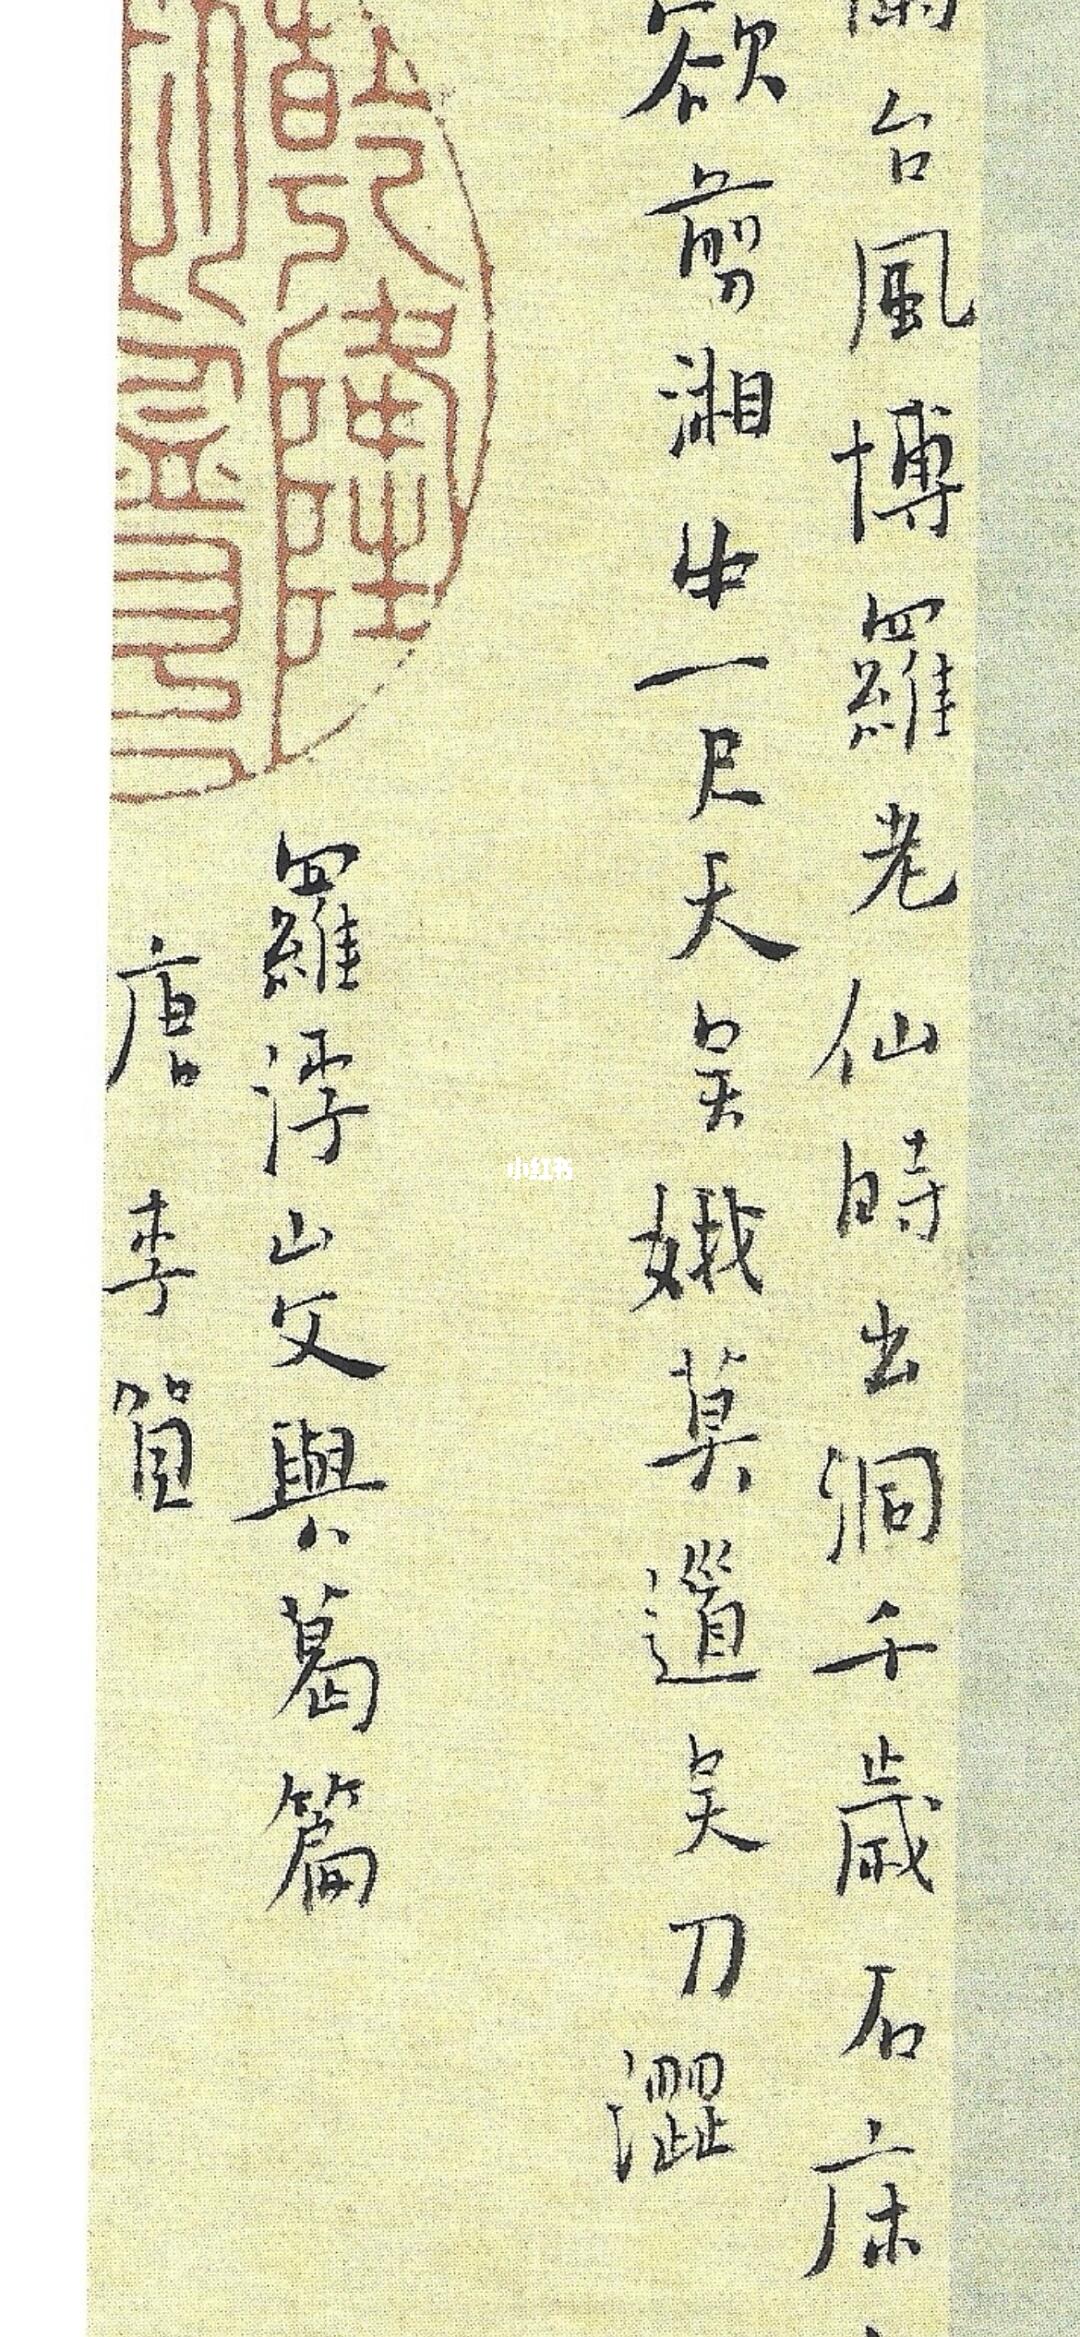 台風博羅老仙時出洞千歲石床
欲剪湘中一尺天吳娥莫道吳刀澀
乾隆
羅浮山父與葛篇
唐李賀
小红书